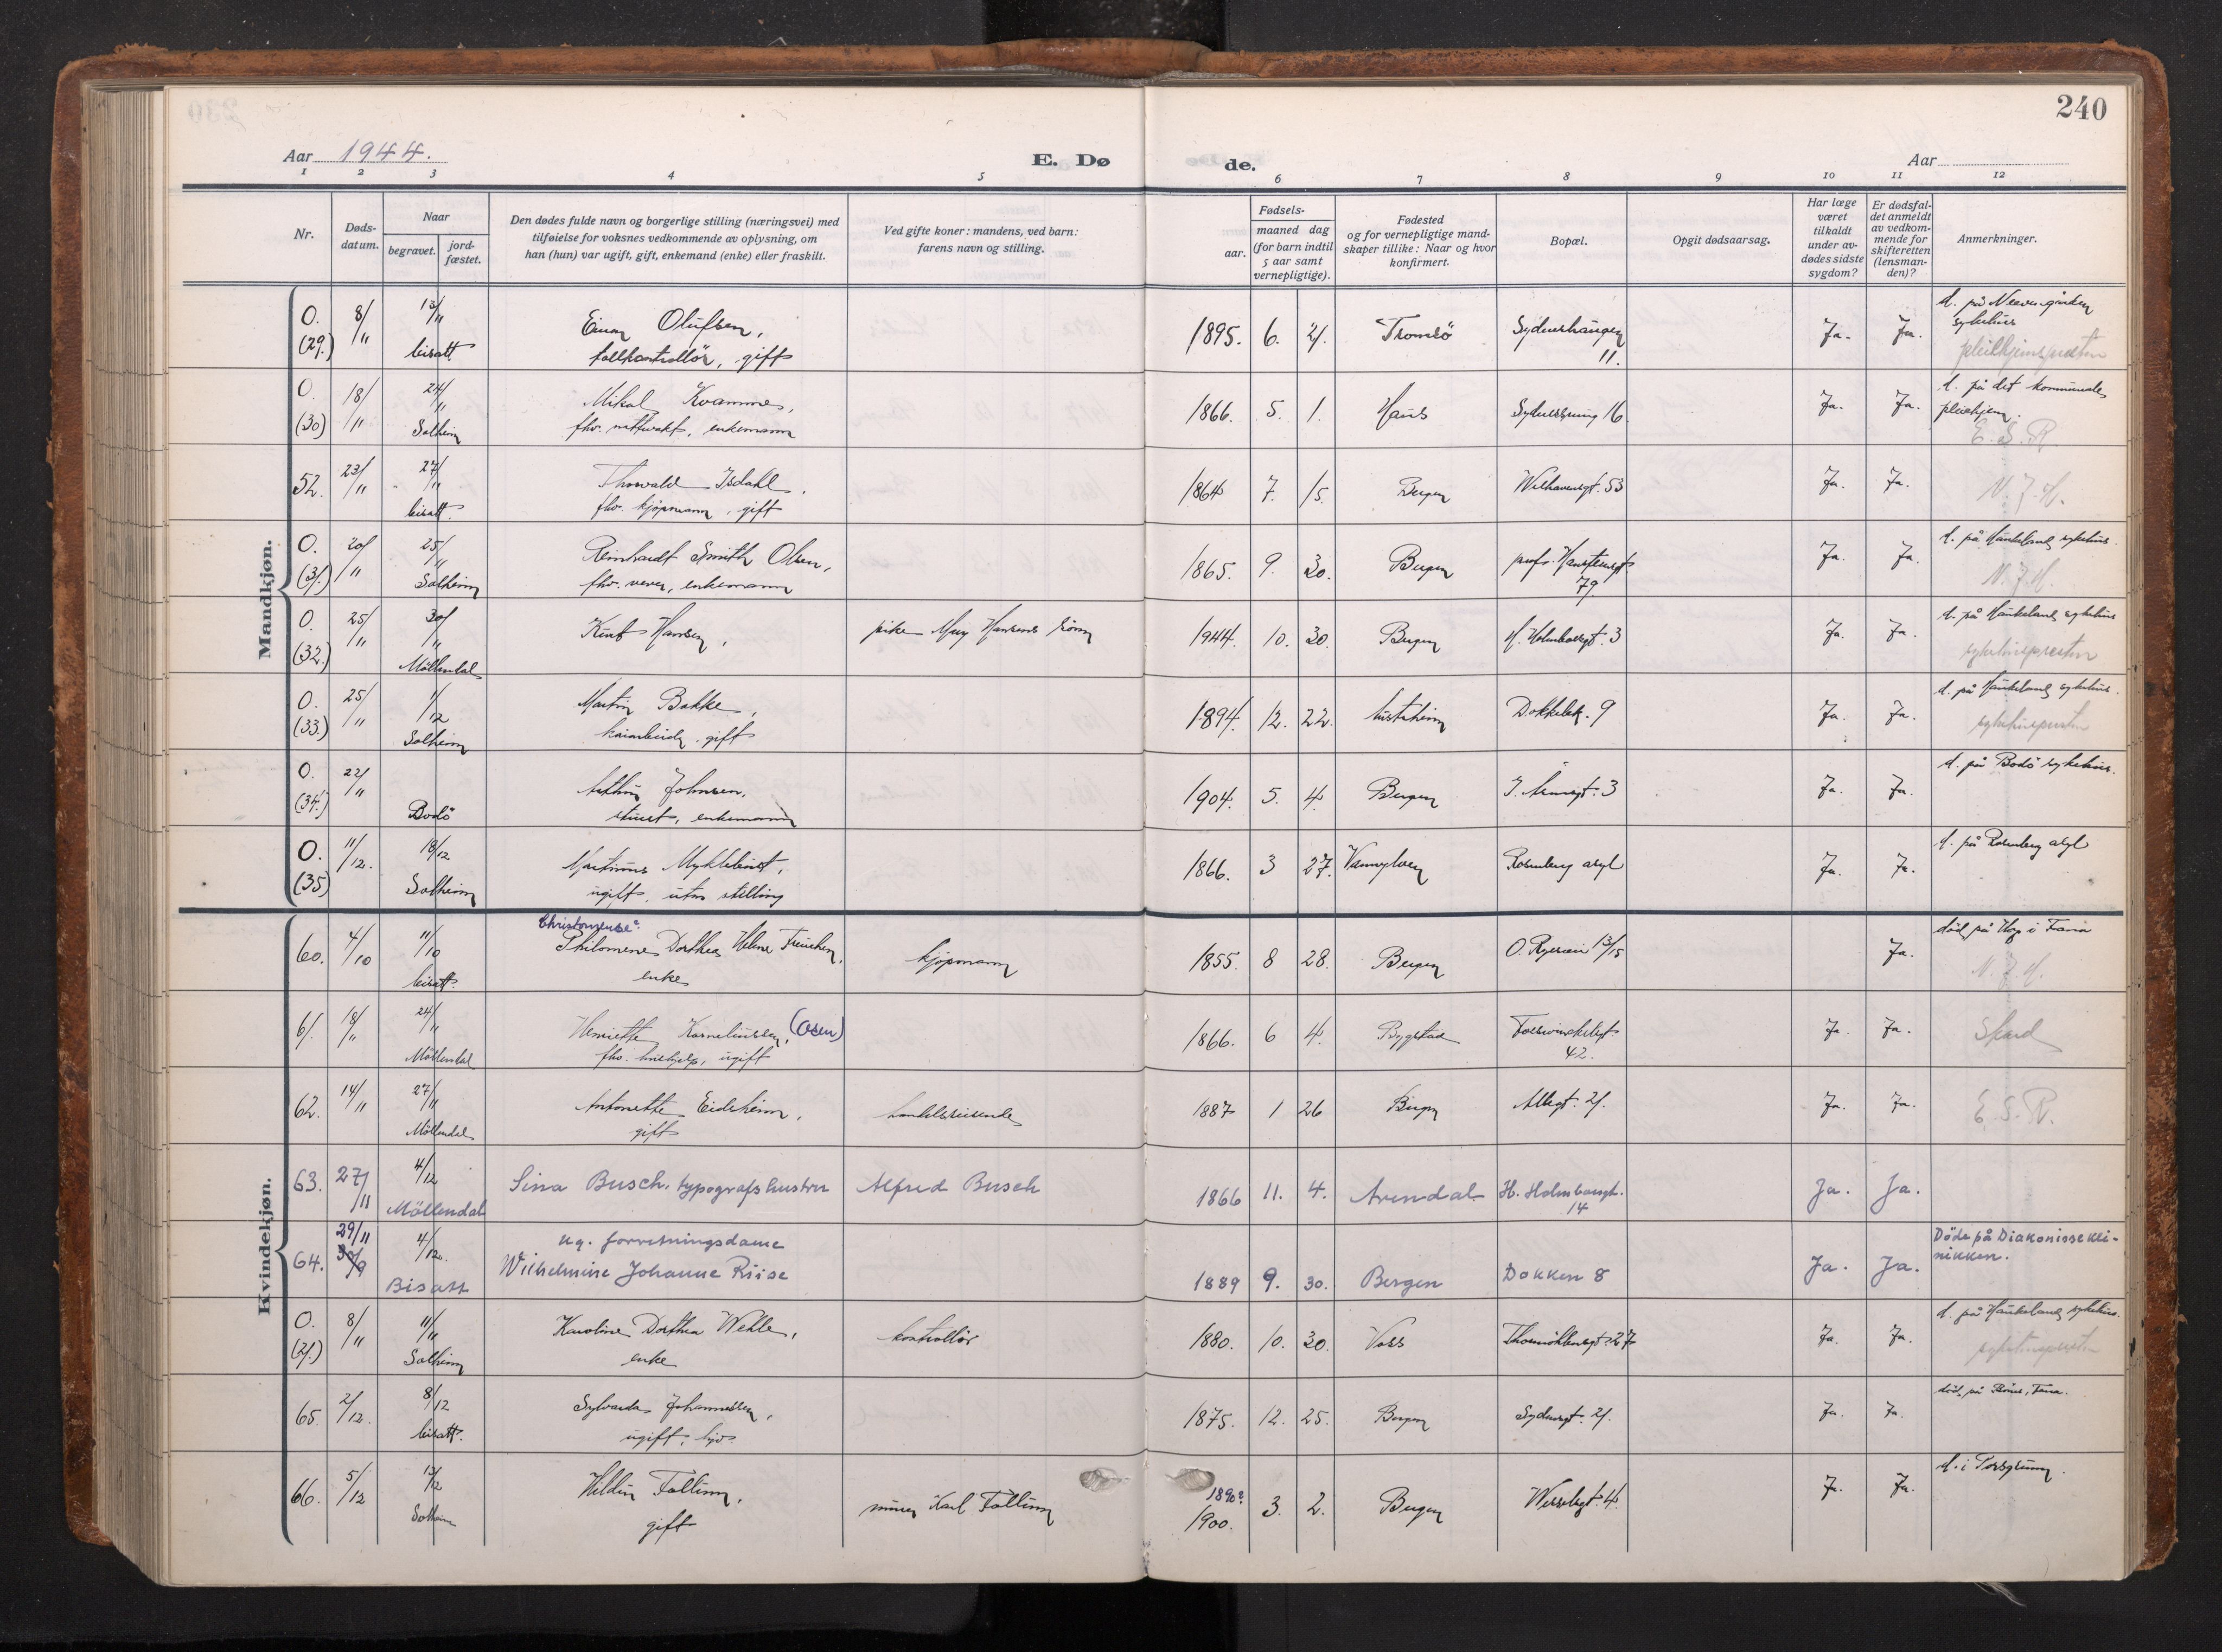 240
Aar 1944.
E. Dø
de.
Aar
1 2 3 4 5 6 7 8 9 10 11 12
Nr.
Døds-
datum.
Naar
begravet.
jord-
fæstet.
Den dødes fulde navn og borgerlige stilling (næringsvei) med
tilføielse for voksnes vedkommende av oplysning, om
han (hun) var ugift, gift, enkemand (enke) eller fraskilt.
Ved gifte koner: mandens, ved barn:
farens navn og stilling.
Fødsels-
aar.
maaned dag
(for barn indtil
5 aar samt
vernepligtige).
Fødested
og for vernepligtige mand-
skaper tillike: Naar og hvor
konfirmert.
Bopæl.
Opgit dødsaarsag.
Har læge
været
tilkaldt
under av-
dødes sidste
sygdom?
Er dødsfal-
det anmeldt
av vedkom-
mende for
skifteretten
(lensman-
den)?
Anmerkninger.
Mandkjøn.
O. (29.) 8/11 13/11 bisatt.
Einar Olufsen,
gift
1895. 6. 21. Tromsö
11. Ja. Ja.
sykehus
O. (30) 18/11 24/11 Solheim
Mikal Kvammes,
fhv. nattvakt, enkemann
1866. 5. 1. Haus
16. Ja. Ja.
d. på det kommunale
pleiehjem.
E. S. R.
52. 23/11 27/11 bisatt.
Thorvald Isdahl,
fhv. kjøpmann, gift
1864 7. 15. Bergen
Welhavensgt. 53 Ja. Ja.
N. J. H.
O. (31.) 20/11 25/11 Solheim
Reinhardt Smith Olsen,
fhv. verver, enkemann
1865. 9. 30. Bergen
prof. Hansteensgt
79. Ja. Ja.
d. på Haukeland sykehus.
N. J. H.
O. (32.) 25/11 30/11 Möllendal
Knut Hansen,
pike May Hansens sönn
1944. 10. 30. Bergen
H. Holmboesgt. 3 Ja. Ja.
d. på Haukeland sykehus
sykehuspresten
O. (33.) 25/11 1/12 Solheim
Martin Bakke,
kaiarbeider, gift
1894. 12. 22.
9 Ja. Ja.
d. på Haukeland sykehus.
sykehuspresten
O. (34.) 22/11 Bodö
Arthur Johnsen,
stuert, enkemann
1904. 5. 4. Bergen
3 Ja. Ja.
d. på Bodö sykehus.
O. (35) 11/12. 18/12 Solheim
Martinus Myklebust,
ugift, uten stilling
1866. 3 27.
Rosenberg asyl Ja. Ja.
d. på Rosenberg asyl
Kvindekjøn.
60. 4/10 11/10 bisatt.
Philomene Dorthea Helene Freuchen,
enke
kjøpmann
1855. 8 28. Bergen
13/15 Ja.
död på Hop i Fana
N. J. H.
61. 18/11 24/11 Möllendal
Henriette Korneliussen, (Osen)
fhv. hushjelp, ugift
1866. 6 4. Bygstad
42. Ja. Ja.
Skard
62. 14/11 27/11 Möllendal
Antonette Eidsheim,
gift
handelsreisende
1887 1 26 Bergen
Allegt. 21. Ja. Ja.
E. S. R.
63. 27/11 4/12 Möllendal
Sina Busch, typografshustru
Alfred Busch
1866 11. 4. Arendal
H. Holmboesgt.
14 Ja. Ja.
64. 29/11 4/12. Bisatt
ug. forretningsdame
Wilhelmine Johanne Riise
1889 9. 30. Bergen
Dokken 8 Ja. Ja.
Döde på Diakonissekli-
nikken.
O. (21.) 8/11 11/11 Solheim
Karoline Dorthea Wehle,
enke
kontrollör
1880. 10. 30. Voss
Thormöhlensgt. 27 Ja. Ja.
d. på Haukeland sykehus.
sykehuspresten
65. 2/12. 8/12 bisatt.
Johannessen,
ugift,
1875. 12. 25. Bergen
Sydnesgt. 21. Ja. Ja.
Fana.
66. 5/12 13/12 Solheim
Falltinn,
gift
murer Karl Falltinn
1890?
1900. 3. 2. Bergen
Wesselsgt. 4. Ja. Ja.